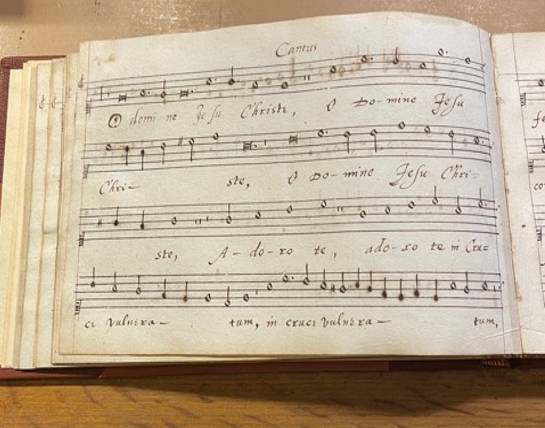 Cantus
O domi ne Jesu Christe, O Do-mine Jesu
Chri- ste, O Do-mine Jesu Chri=
ste, A-do-ro te, ado-ro te in Cru=
ci vulnera- tum, in cruci vulnera- tum,